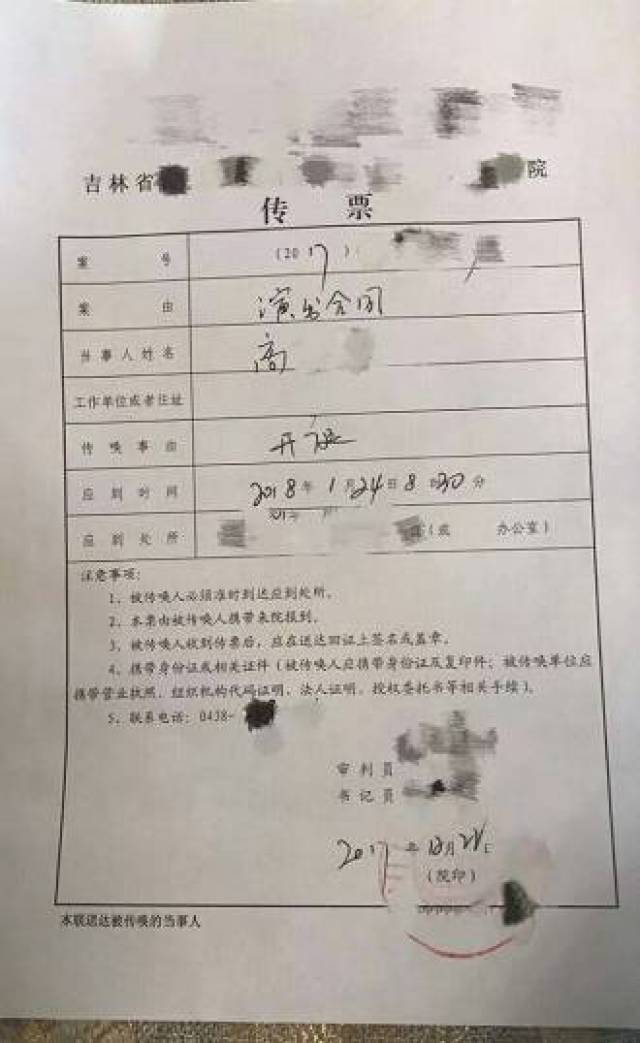 吉林省 院
传 票
案 号 (2017)
案 由 演出合同
当事人姓名 高
工作单位或者住址
传唤事由 开庭
应到时间 2018年1月24日8时30分
应到处所 (或 办公室)
注意事项:
1、被传唤人必须准时到达应到处所。
2、本票由被传唤人携带来院报到。
3、被传唤人收到传票后,应在送达回证上签名或盖章。
4、携带身份证或相关证件(被传唤人应携带身份证及复印件;被传唤单位应
携带营业执照、组织机构代码证明、法人证明、授权委托书等相关手续)。
5、联系电话:0438-
审判员
书记员
2017年12月 日
(院印)
本联送达被传唤的当事人